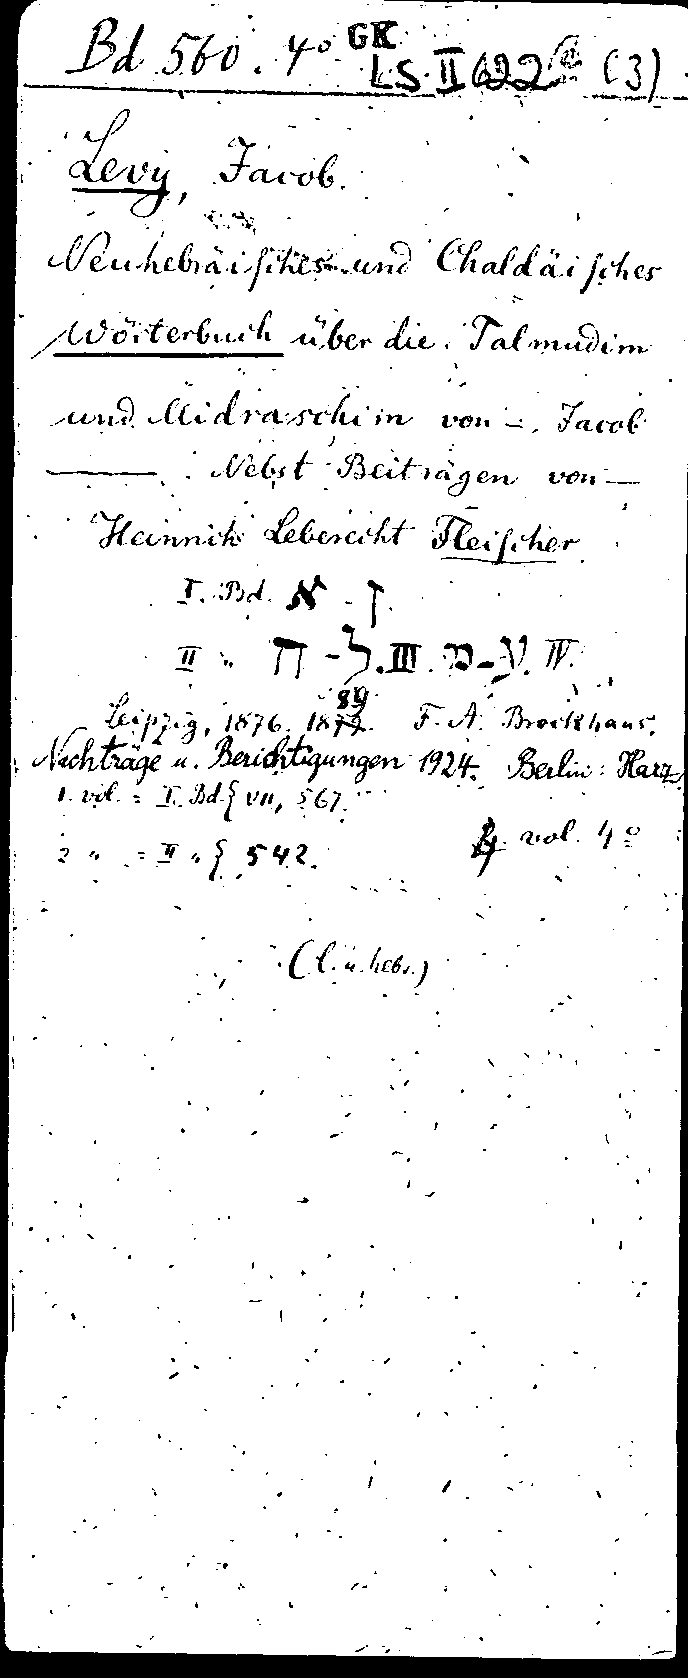 Bd 560. 4° GK
LS II 622 (3)
Levy, Jacob.
Neuhebräisches und Chaldäisches
Wörterbuch über die Talmudim
und Midraschim von -. Jacob
——. Nebst Beiträgen von —
Heinrich Leberecht Fleischer.
I. Bd. א - ז.
II " ח - ל. III. מ - ע. IV.
Leipzig, 1876. 1889. F. A. Brockhaus.
Nachträge u. Berichtigungen 1924. Berlin: Harz
1. vol. = I. Bd { VII, 567.
2 " = II " { 542.
4. vol. 4°
(l. u. hebr.)